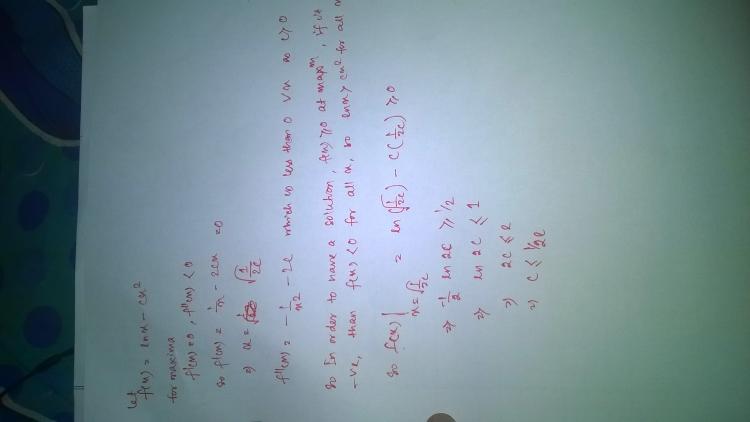 let
f(x) = lnx - cx²
for maxima
f'(x) = 0 , f''(x) < 0
so f'(x) = 1/x - 2cx = 0
⇒ x = √(1/2c)
f''(x) = -1/x² - 2c which is less than 0 ∀x as c>0
so In order to have a solution, f(x) ≥ 0 at maxᵐ, if it
-ve, than f(x) < 0 for all x, so lnx > cx² for all
so f(x)|x=√(1/2c) = ln(√(1/2c)) - c(1/2c) ≥ 0
⇒ -1/2 ln 2c ≥ 1/2
⇒ ln 2c ≤ 1
⇒ 2c ≤ e
⇒ c ≤ 1/2e